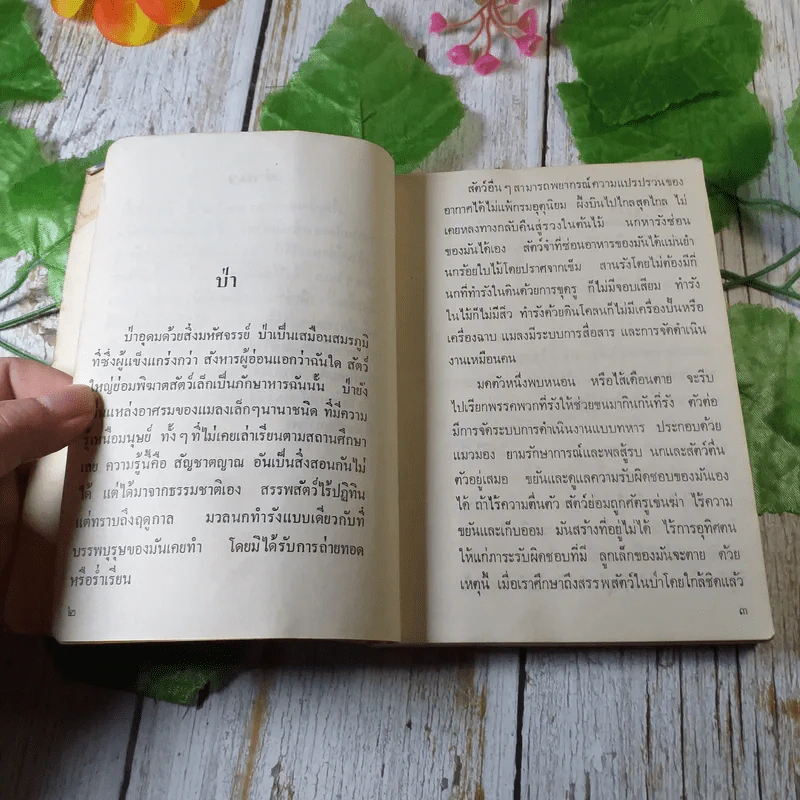 ป่า
ป่าอุดมด้วยสิ่งมหัศจรรย์ ป่าเป็นเสมือนสมรภูมิ
ที่ซึ่งผู้แข็งแกร่งกว่า สังหารผู้อ่อนแอกว่าฉันใด สัตว์
ใหญ่ย่อมพิฆาตสัตว์เล็กเป็นภักษาหารฉันนั้น ป่ายัง
เป็นแหล่งอาศรมของแมลงเล็กๆนานาชนิด ที่มีความ
รู้เหนือมนุษย์ ทั้ง ๆ ที่ไม่เคยเล่าเรียนตามสถานศึกษา
เลย ความรู้นี้คือ สัญชาตญาณ อันเป็นสิ่งสอนกันไม่
ได้ แต่ได้มาจากธรรมชาติเอง สรรพสัตว์ไร้ปฏิทิน
แต่ทราบถึงฤดูกาล มวลนกทำรังแบบเดียวกับที่
บรรพบุรุษของมันเคยทำ โดยมิได้รับการถ่ายทอด
หรือร่ำเรียน
๒
สัตว์อื่น ๆ สามารถพยากรณ์ความแปรปรวนของ
อากาศได้ไม่แพ้กรมอุตุนิยม ผึ้งบินไปไกลสุดไกล ไม่
เคยหลงทางกลับคืนสู่รวงในต้นไม้ นกหารังซ่อน
ของมันได้เอง สัตว์จำที่ซ่อนอาหารของมันได้แม่นยำ
นกร้อยใบไม้โดยปราศจากเข็ม สานรังโดยไม่ต้องมีกี่
นกที่ทำรังในดินด้วยการขุดรู ก็ไม่มีจอบเสียม ทำรัง
ในไม้ก็ไม่มีสิ่ว ทำรังด้วยดินโคลนก็ไม่มีเครื่องปั้นหรือ
เครื่องฉาบ แมลงมีระบบการสื่อสาร และการจัดดำเนิน
งานเหมือนคน
มดตัวหนึ่งพบหนอน หรือไส้เดือนตาย จะรีบ
ไปเรียกพรรคพวกที่รังให้ช่วยขนมากินกันที่รัง ตัวต่อ
มีการจัดระบบการดำเนินงานแบบทหาร ประกอบด้วย
แมวมอง ยามรักษาการณ์และพลสู้รบ นกและสัตว์ตื่น
ตัวอยู่เสมอ ขยันและดูแลความรับผิดชอบของมันเอง
ได้ ถ้าไร้ความตื่นตัว สัตว์ย่อมถูกศัตรูเข่นฆ่า ไร้ความ
ขยันและเก็บออม มันสร้างที่อยู่ไม่ได้ ไร้การอุทิศตน
ให้แก่ภาระรับผิดชอบที่มี ลูกเล็กของมันจะตาย ด้วย
เหตุนี้ เมื่อเราศึกษาถึงสรรพสัตว์ในป่าโดยใกล้ชิดแล้ว
๓